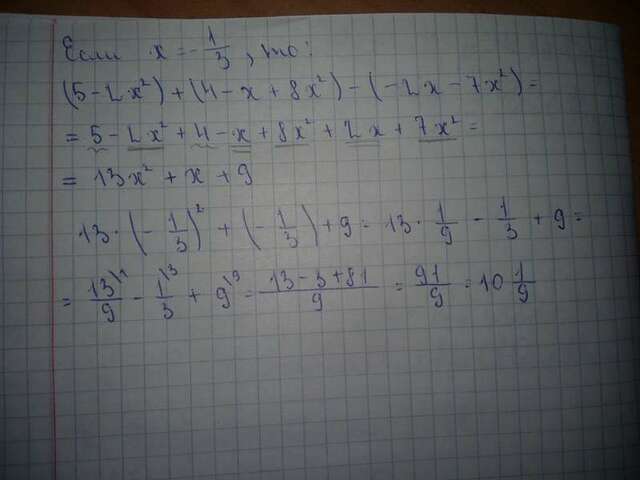 Если x = -1/3, то:
(5 - 2x²) + (4 - x + 8x²) - (-2x - 7x²) =
= 5 - 2x² + 4 - x + 8x² + 2x + 7x² =
= 13x² + x + 9
13 · (-1/3)² + (-1/3) + 9 = 13 · 1/9 - 1/3 + 9 =
= 13\1/9 - 1\3/3 + 9\9 = 13 - 3 + 81/9 = 91/9 = 10 1/9